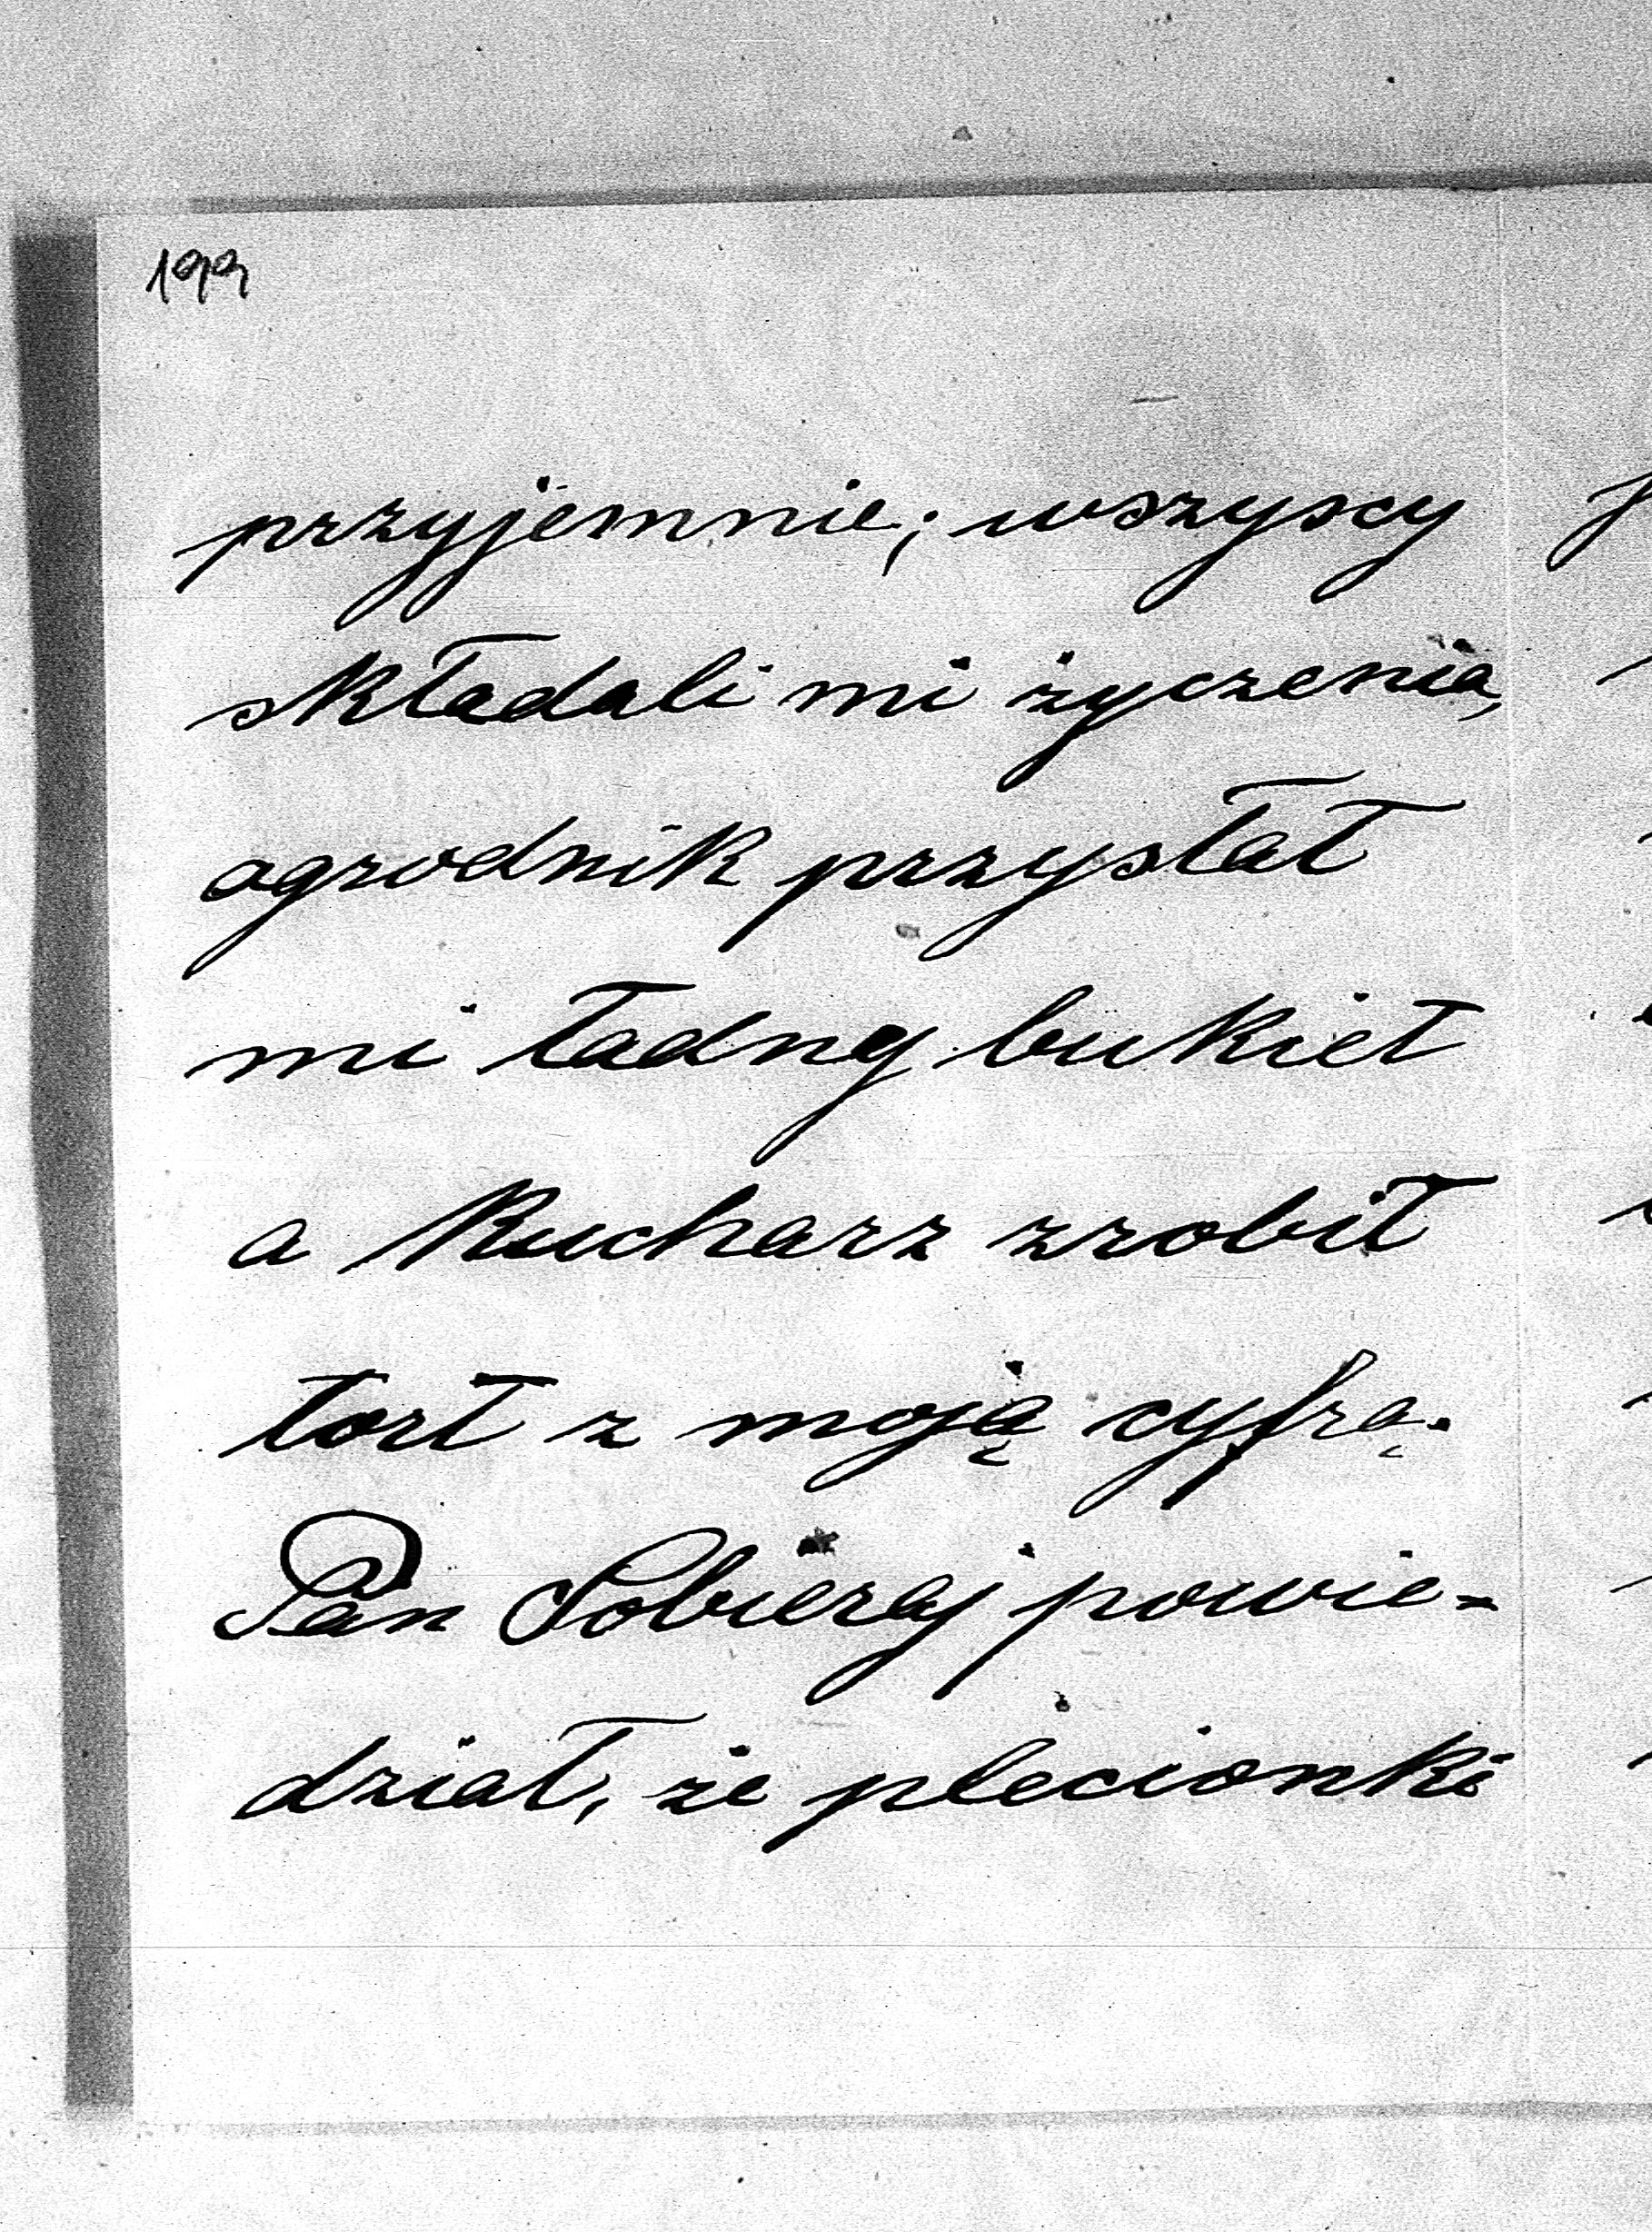 199
przyjemnie; wszyscy
składali mi życzenia,
ogrodnik przysłał
mi ładny bukiet
a kucharz zrobił
tort z moją cyfrą.
Pan Sobieraj powie=
dział, że plecionki